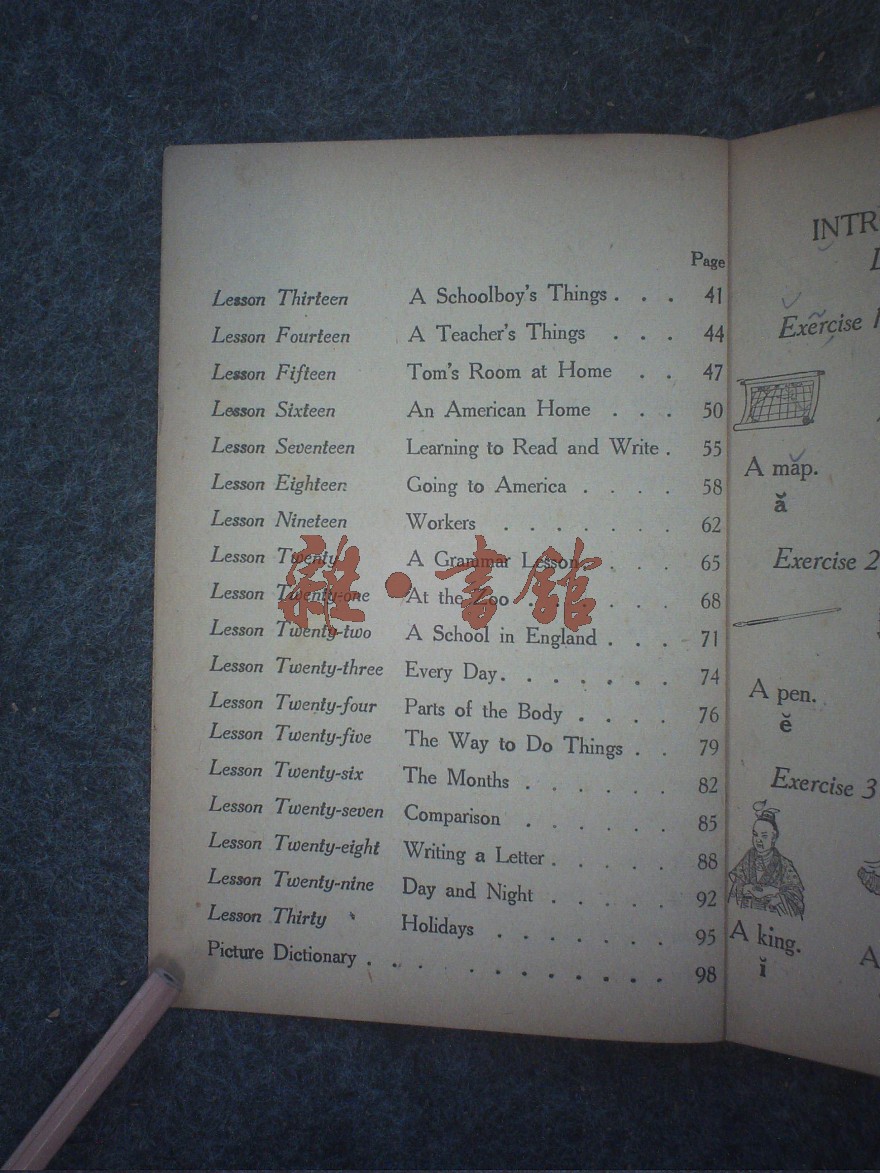 Page
Lesson Thirteen A Schoolboy's Things . . . 41
Lesson Fourteen A Teacher's Things . . . 44
Lesson Fifteen Tom's Room at Home . . 47
Lesson Sixteen An American Home . . . 50
Lesson Seventeen Learning to Read and Write . 55
Lesson Eighteen Going to America . . . . 58
Lesson Nineteen Workers . . . . . . . 62
Lesson Twenty A Grammar Lesson . . . 65
Lesson Twenty-one At the Zoo . . . . . . 68
Lesson Twenty-two A School in England . . . 71
Lesson Twenty-three Every Day . . . . . . . 74
Lesson Twenty-four Parts of the Body . . . . 76
Lesson Twenty-five The Way to Do Things . . 79
Lesson Twenty-six The Months . . . . . . 82
Lesson Twenty-seven Comparison . . . . . . 85
Lesson Twenty-eight Writing a Letter . . . . . 88
Lesson Twenty-nine Day and Night . . . . . 92
Lesson Thirty Holidays . . . . . . . 95
Picture Dictionary . . . . . . . . . . . 98
雜·書館
INTR
Exercise 1
A map.
ă
Exercise 2
A pen.
ĕ
Exercise 3
A king.
ĭ
A